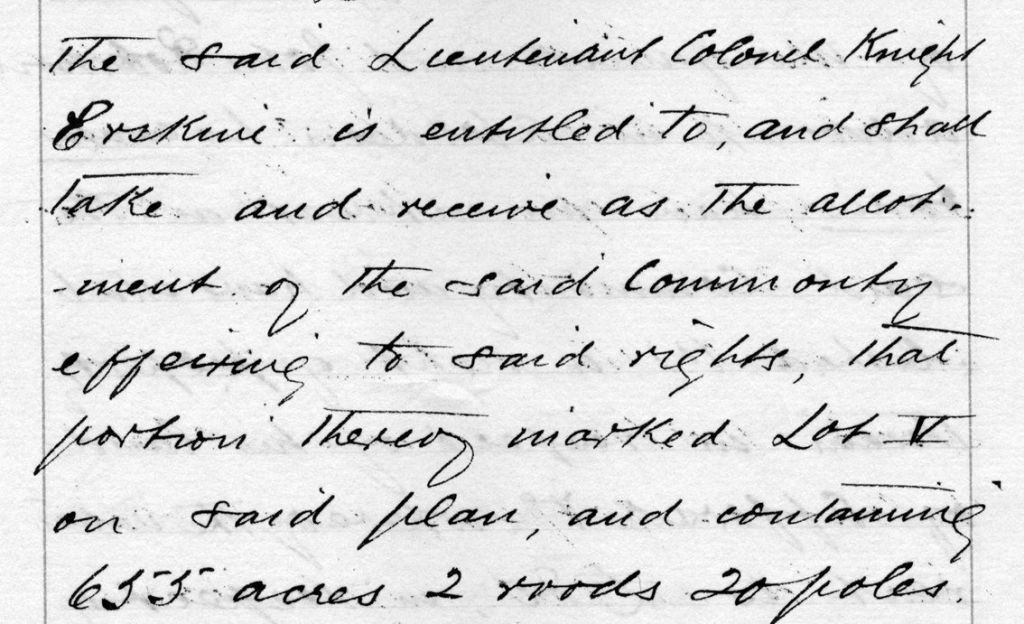 The said Lieutenant Colonel Knight
Erskine is entitled to, and shall
take and receive as the allot-
-ment of the said Commonty
effeiring to said rights, that
portion thereof marked Lot V
on said plan, and containing
655 acres 2 roods 20 poles.